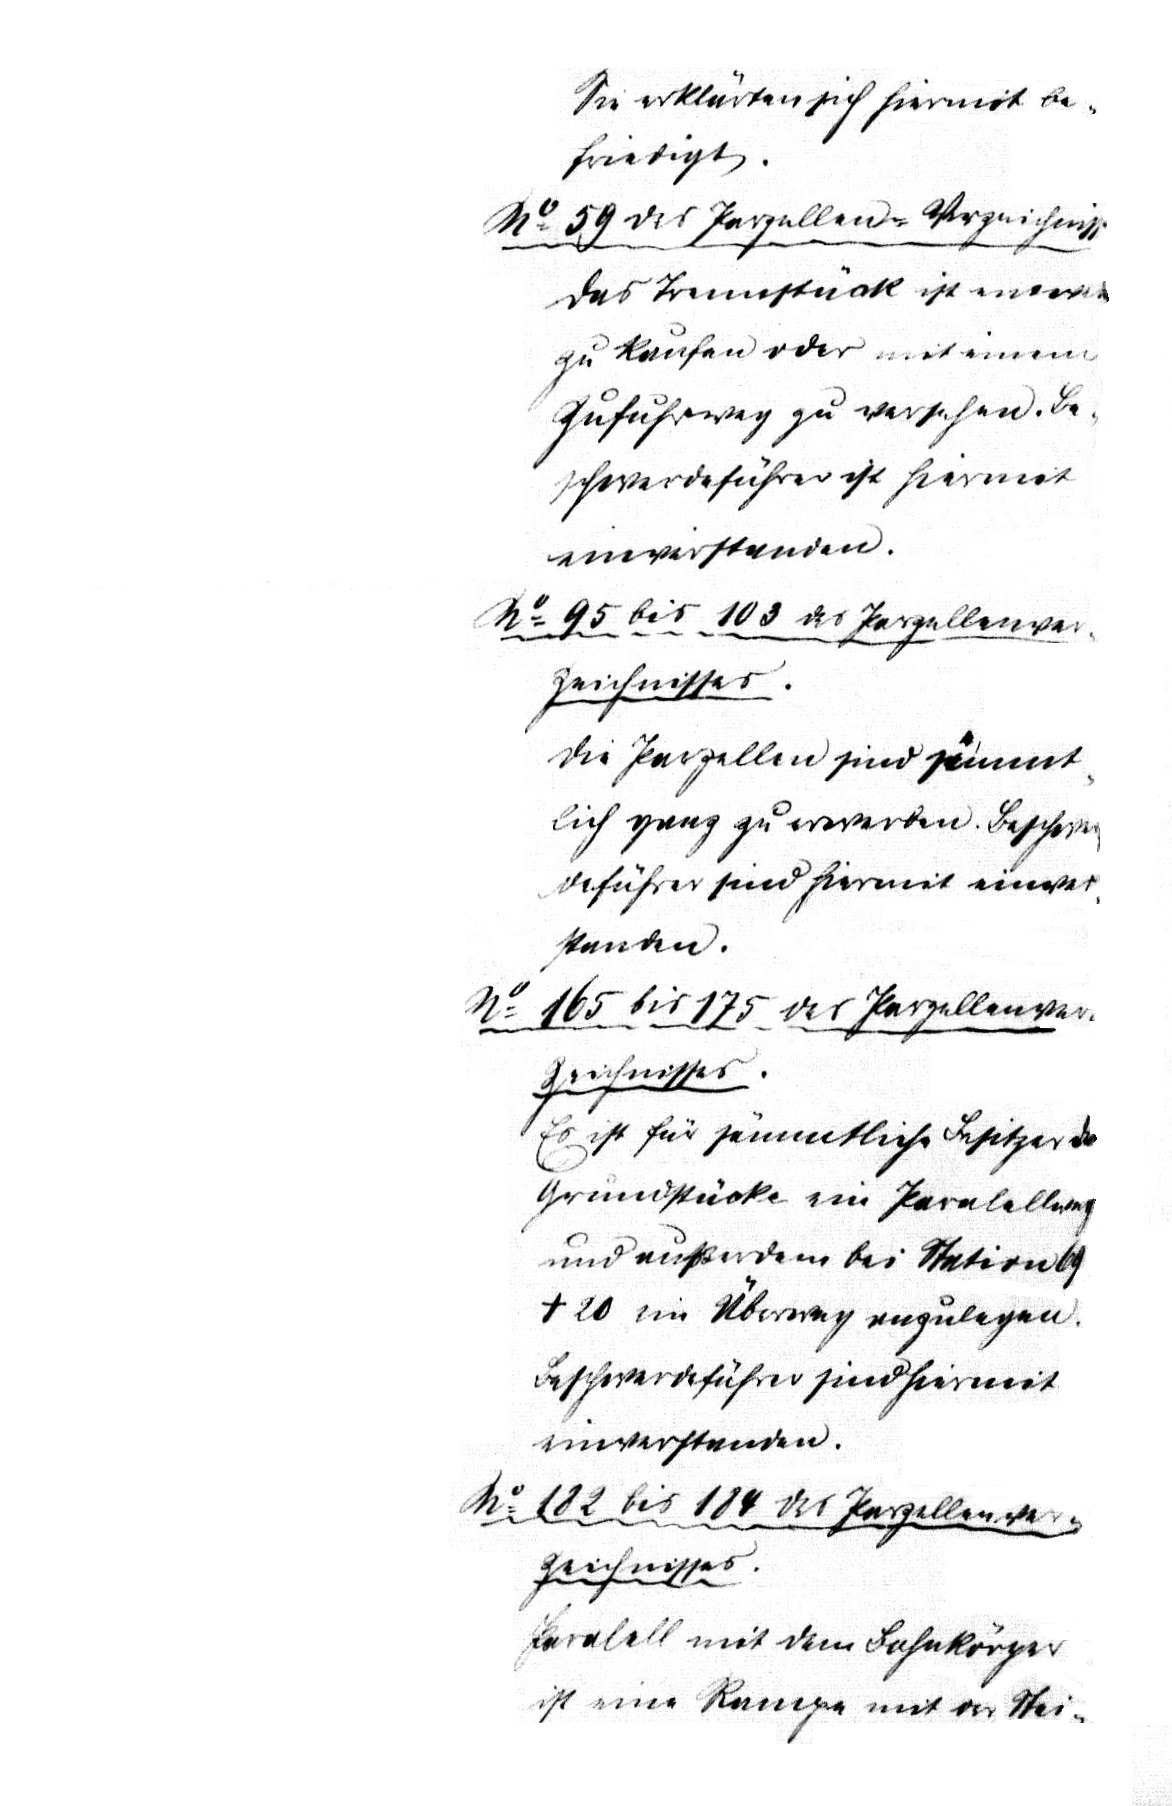 Sie erklärten sich hiermit be-
friedigt.
No 59 des Parzellen-Verzeichniss
Das Trennstück ist entwed
zu kaufen oder mit einem
Zufuhrweg zu versehen. Be-
schwerdeführer ist hiermit
einverstanden.
No 95 bis 103 des Parzellenver-
zeichnisses.
Die Parzellen sind sämmt-
lich ganz zu erwerben. Beschwer
deführer sind hiermit einver-
standen.
No 165 bis 175 des Parzellenver-
zeichnisses.
Es ist für sämmtliche Besitzer der
Grundstücke ein Paralellweg
und außerdem bei Station 69
+ 20 ein Überweg anzulegen.
Beschwerdeführer sind hiermit
einverstanden.
No 182 bis 184 des Parzellenver-
zeichnisses.
Paralell mit dem Bahnkörper
ist eine Rampe mit der Stei-